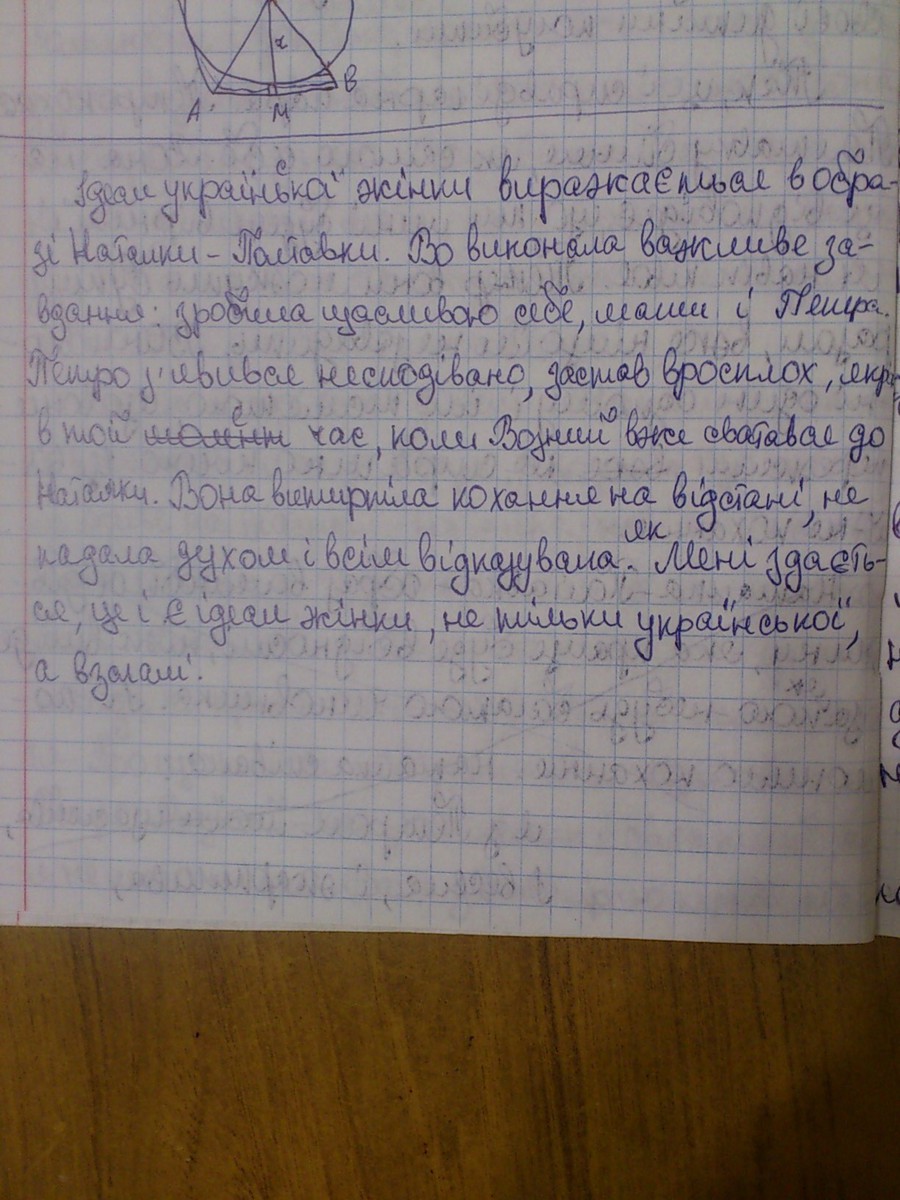 α
A M B
Ідеал української жінки виражається в обра-
зі Наталки-Полтавки. Во виконала важливе за-
вдання: зробила щасливою себе, мами і Петра.
Петро з'явився несподівано, застав вросплох, якр
в той час, коли Возний вже сватавсь до
Наталки. Вона витерпіла кохання на відстані, не
падала духом і всім відказувала як. Мені здаєть-
ся, це і є ідеал жінки, не тільки української,
а взагалі.